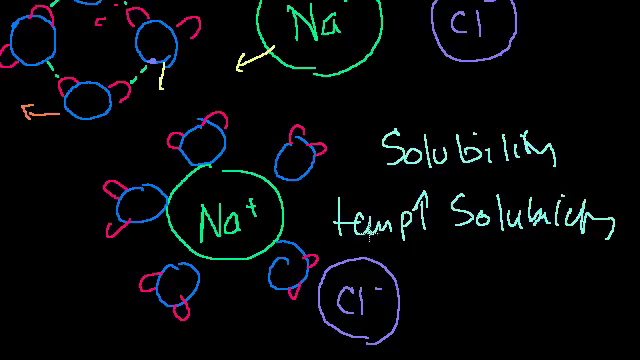 Na
Cl⁻
Solubility
temp↑ Solubility
Na⁺
Cl⁻